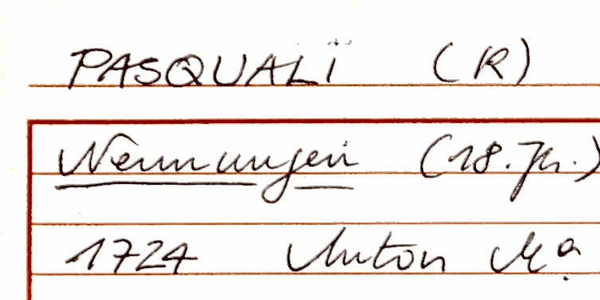 PASQUALI (R)
Nennungen (18. Jh.)
1724 Anton Mª